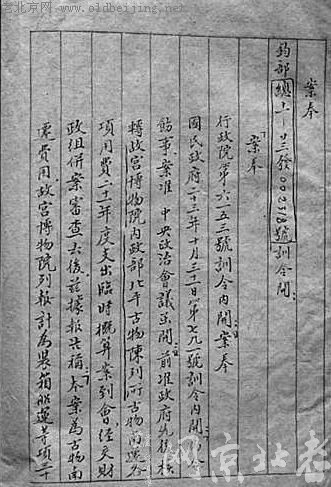 老北京网
www.oldbeijing.net
案奉
鈞部總上號訓令開：
案奉
行政院第六一五三號訓令內開：
國民政府二十二年十月三十一日第七九一號訓令內開：令
飭事案准 中央政治會議函開：前准政府先後核
轉故宮博物院內政部北平古物陳列所古物南遷各
項用費二十一年度支出臨時概算案到會，經交財
政組併案審查去後。茲據報告稱：本案為古物南
遷費用，故宮博物院列報計為裝箱船運等項二十
网京北老